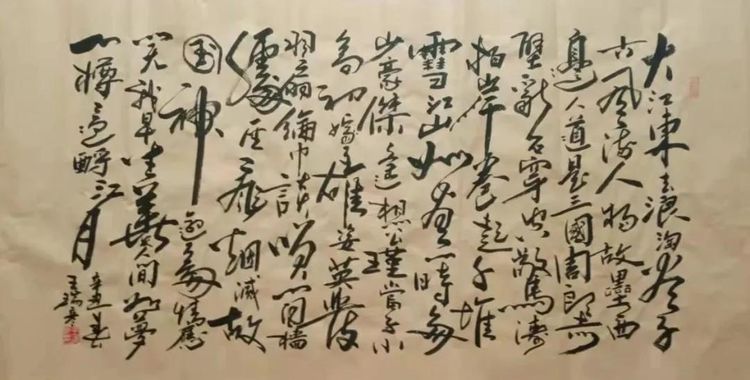 大江東去浪淘盡千
古風流人物故壘西
邊人道是三國周郎赤
壁亂石穿空驚濤
拍岸卷起千堆
雪江山如畫一時多
少豪傑遙想公瑾當年小
喬初嫁了雄姿英發
羽扇綸巾談笑間檣
櫓灰飛烟滅故
國神遊多情應
笑我早生華髮人間如夢
一樽還酹江月
辛丑春
王瑞